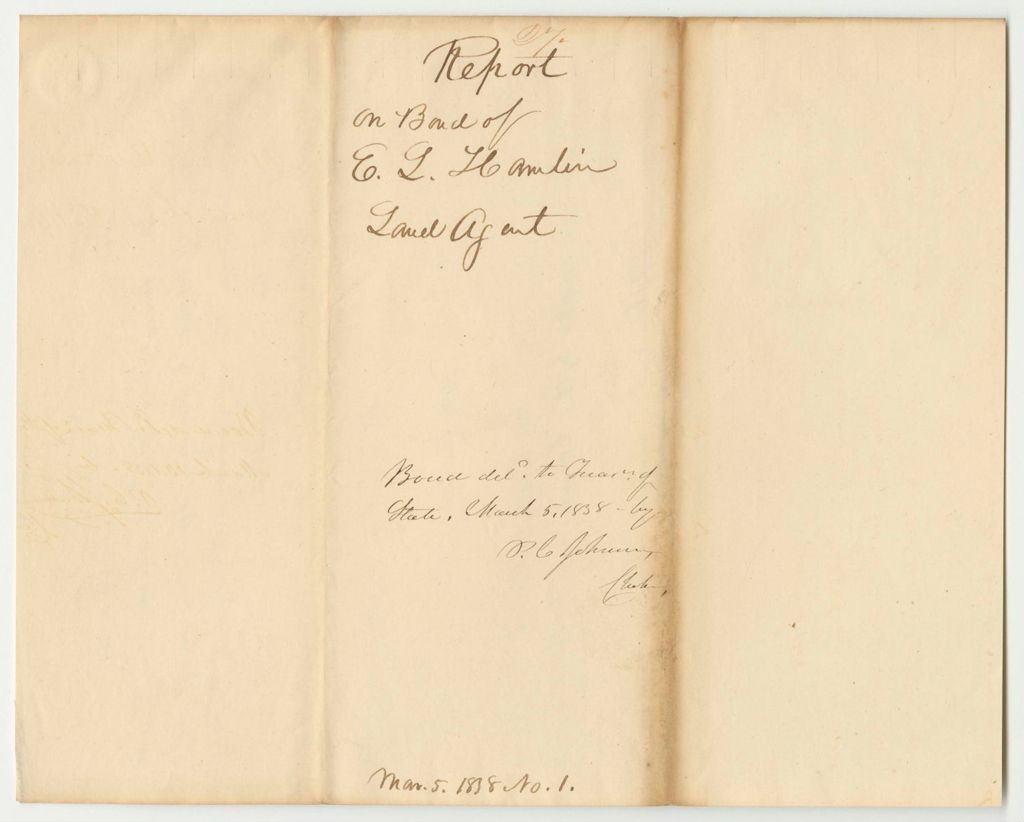 Report
on Bond of
E. L. Hamlin
Land Agent
Bond deld. to Treasr. of
State, March 5, 1838 - by
P. C. Johnson,
Clerk,
Mar. 5. 1838 No. 1.